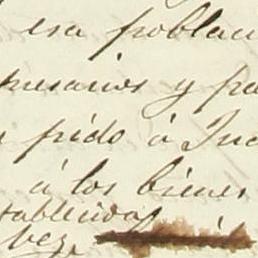 esa poblac
presarios y pa
pido á Jua
á los bienes
tablecidas
vez